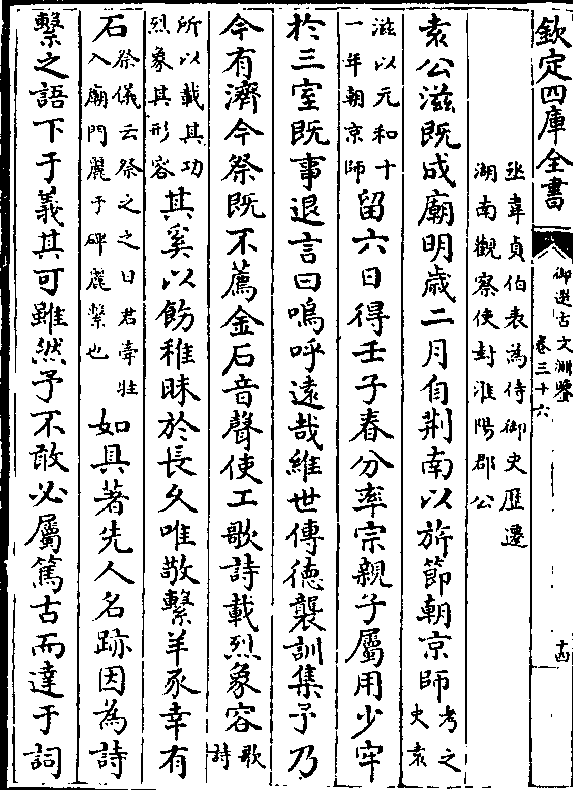 欽定四庫全書
御選古文淵鑒
卷三十六
十四
丞韋貞伯表為侍御史歷遷
湖南觀察使封淮陽郡公
袁公滋既成廟明歲二月自荆南以旂節朝京師考之史袁
滋以元和十一年朝京師留六日得壬子春分率宗親子屬用少牢
於三室既事退言曰嗚呼遠哉維世傳德襲訓集予乃
今有濟今祭既不薦金石音聲使工歌詩載烈象容歌詩
所以載其功烈象其形容其奚以飭稚昧於長久唯敬繫羊豕幸有
石祭儀云祭之之日君牽牲入廟門麗于碑麗繫也如具著先人名跡因為詩
繫之語下于義其可雖然予不敢必屬篤古而達于詞